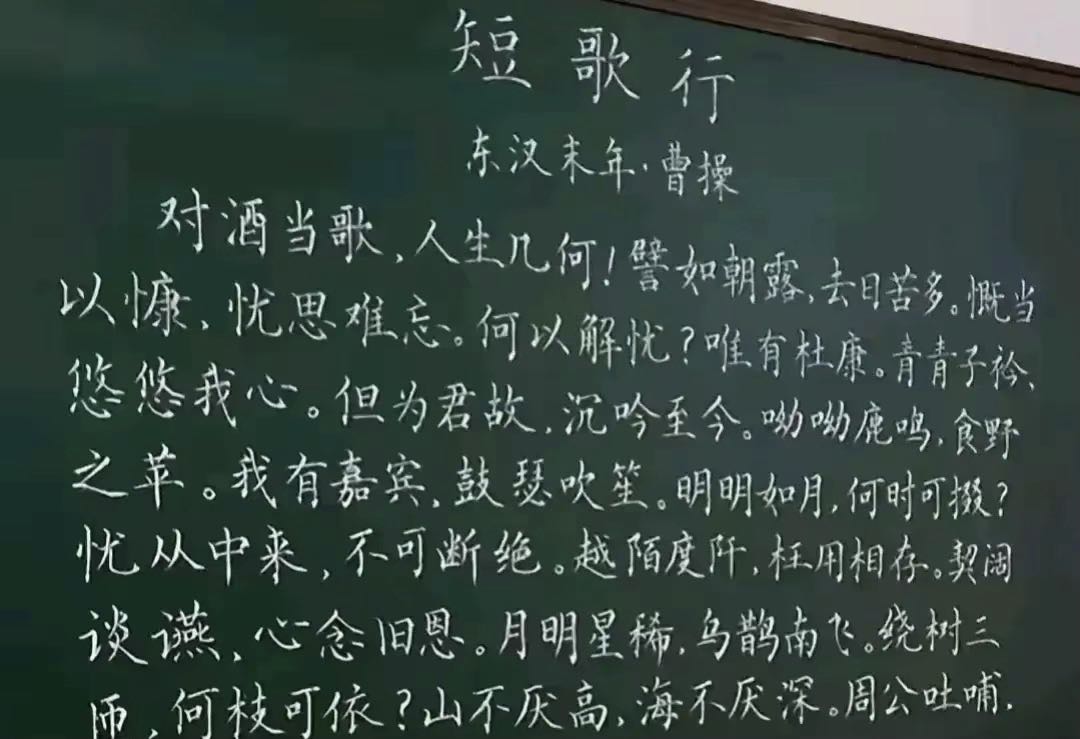 短歌行
东汉末年·曹操
对酒当歌，人生几何！譬如朝露，去日苦多。慨当
以慷，忧思难忘。何以解忧？唯有杜康。青青子衿，
悠悠我心。但为君故，沉吟至今。呦呦鹿鸣，食野
之苹。我有嘉宾，鼓瑟吹笙。明明如月，何时可掇？
忧从中来，不可断绝。越陌度阡，枉用相存。契阔
谈讌，心念旧恩。月明星稀，乌鹊南飞。绕树三
匝，何枝可依？山不厌高，海不厌深。周公吐哺，